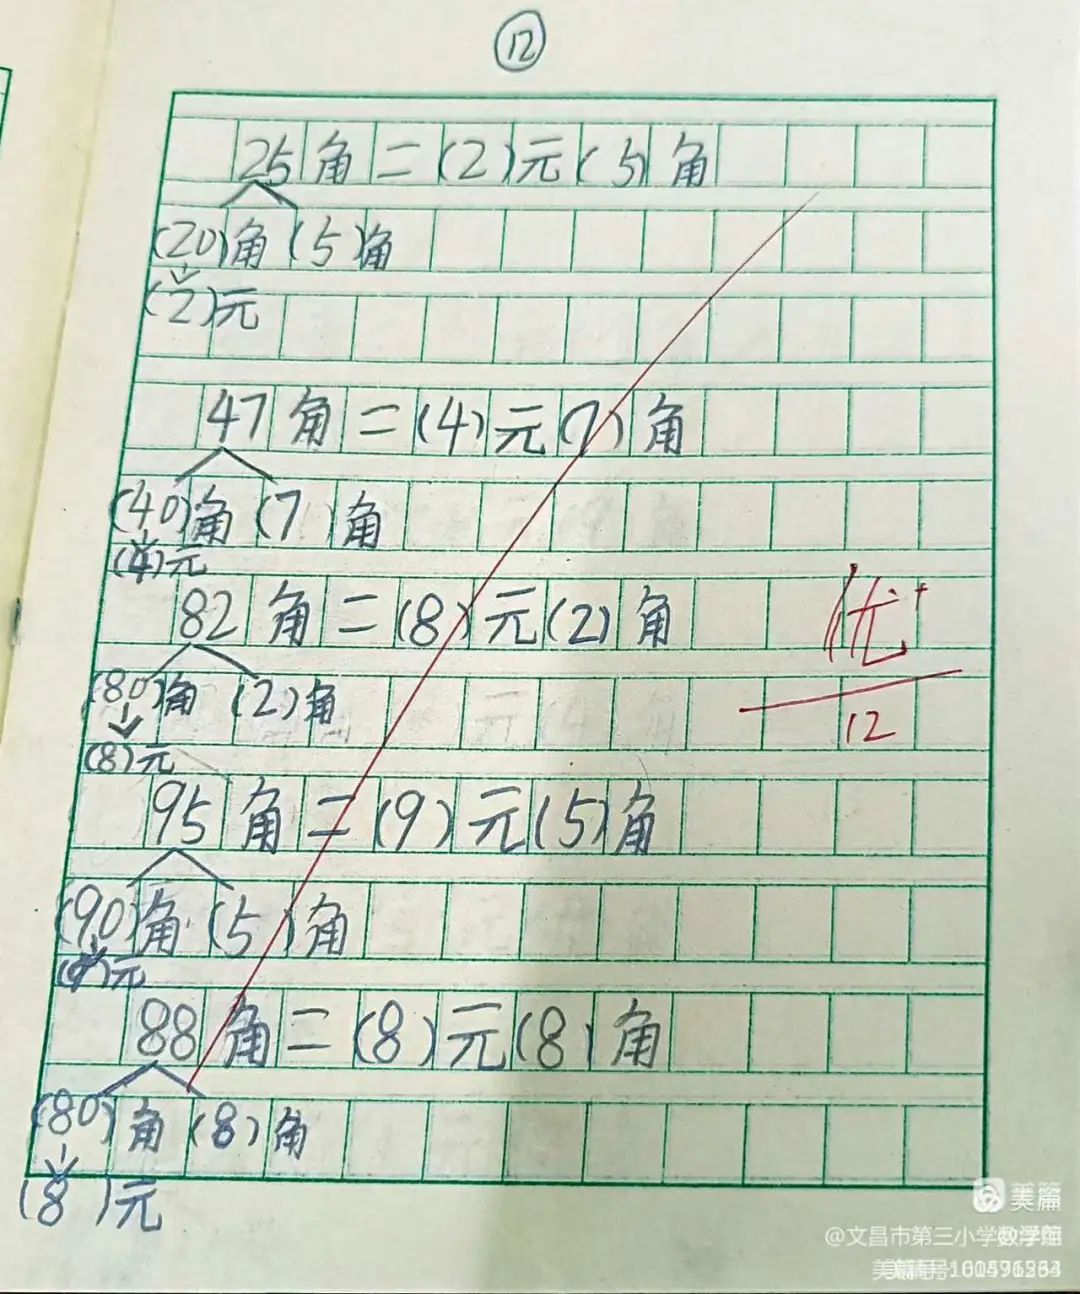 12
25角=(2)元(5)角
(20)角(5)角
(2)元
47角=(4)元(7)角
(40)角(7)角
(4)元
82角=(8)元(2)角
优+
(80)角(2)角
12
(8)元
95角=(9)元(5)角
(90)角(5)角
(9)元
88角=(8)元(8)角
(80)角(8)角
(8)元
美篇
@文昌市第三小学数学